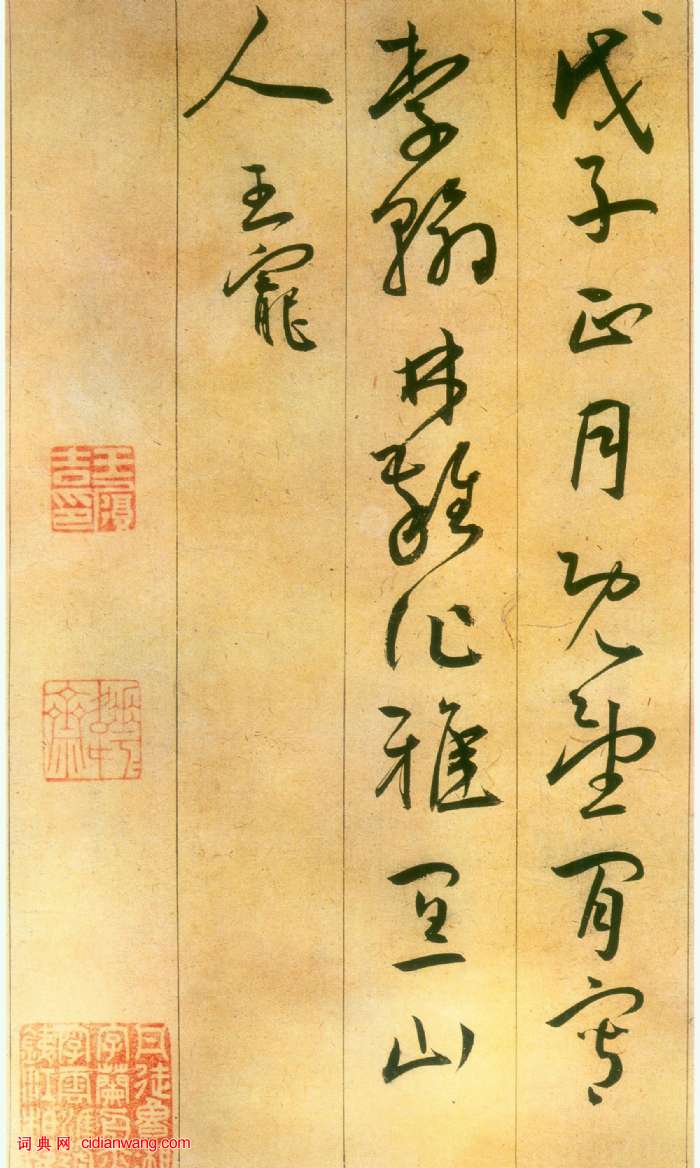 戊子正月既望閒寫
李翰林雜作雅宜山
人 王寵
王履吉印
词典网 cidianwang.com